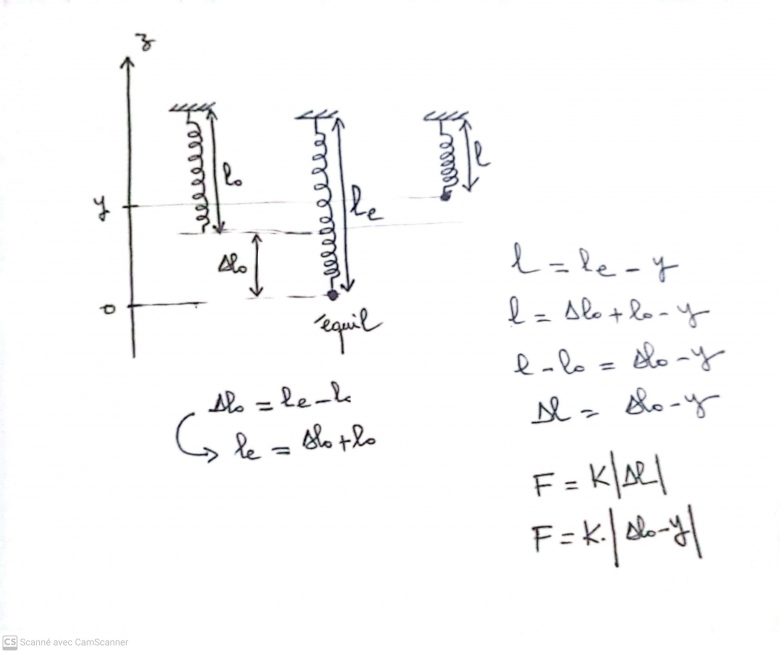 z
l₀
lₑ
l
y
Δl₀
o
équil
Δl₀ = lₑ - l₀
lₑ = Δl₀ + l₀
l = lₑ - y
l = Δl₀ + l₀ - y
l - l₀ = Δl₀ - y
Δl = Δl₀ - y
F = K|Δl|
F = K.|Δl₀-y|
CS Scanné avec CamScanner